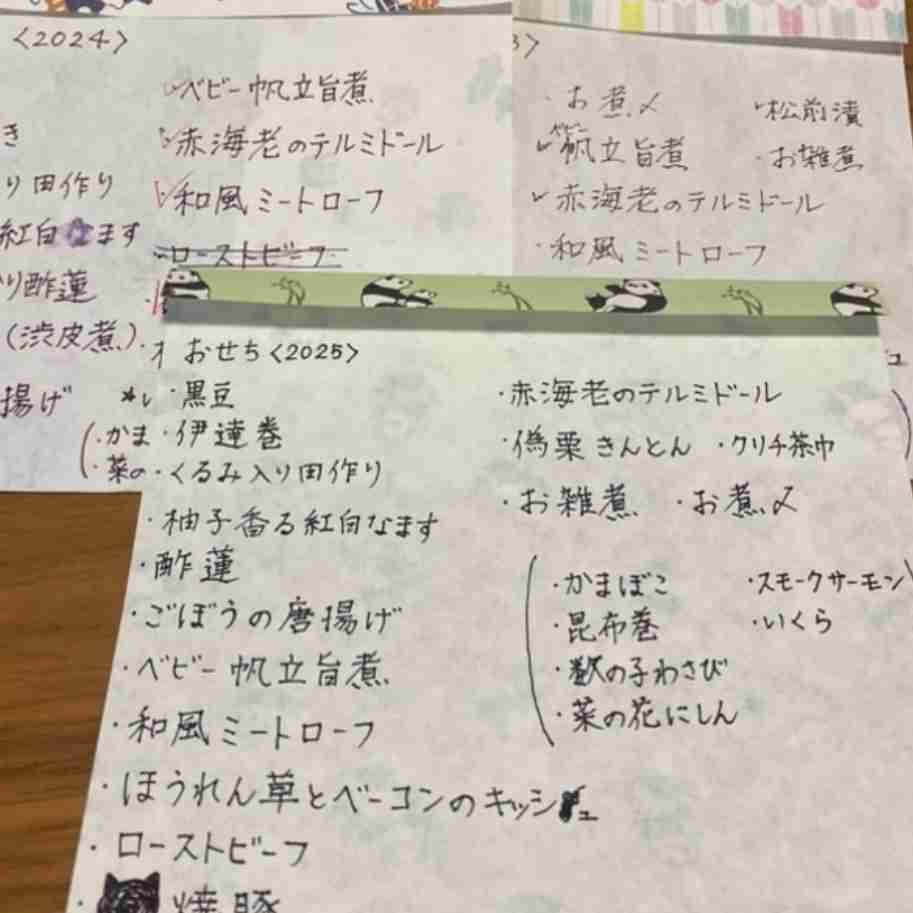 <2024>
き
り田作り
紅白なます
り酢蓮
(渋皮煮)
揚げ
・かま
・菜の
ベビー帆立旨煮
赤海老のテルミドール
和風ミートローフ
ローストビーフ
3>
・お煮〆 松前漬
ベビー
帆立旨煮 ・お雑煮
赤海老のテルミドール
・和風ミートローフ
おせち<2025>
・黒豆
・伊達巻
・くるみ入り田作り
・柚子香る紅白なます
・酢蓮
・ごぼうの唐揚げ
・ベビー帆立旨煮
・和風ミートローフ
・ほうれん草とベーコンのキッシュ
・ローストビーフ
・焼豚
・赤海老のテルミドール
・偽栗きんとん ・クリチ茶巾
・お雑煮 ・お煮〆
・かまぼこ ・スモークサーモン
・昆布巻 ・いくら
・数の子わさび
・菜の花にしん